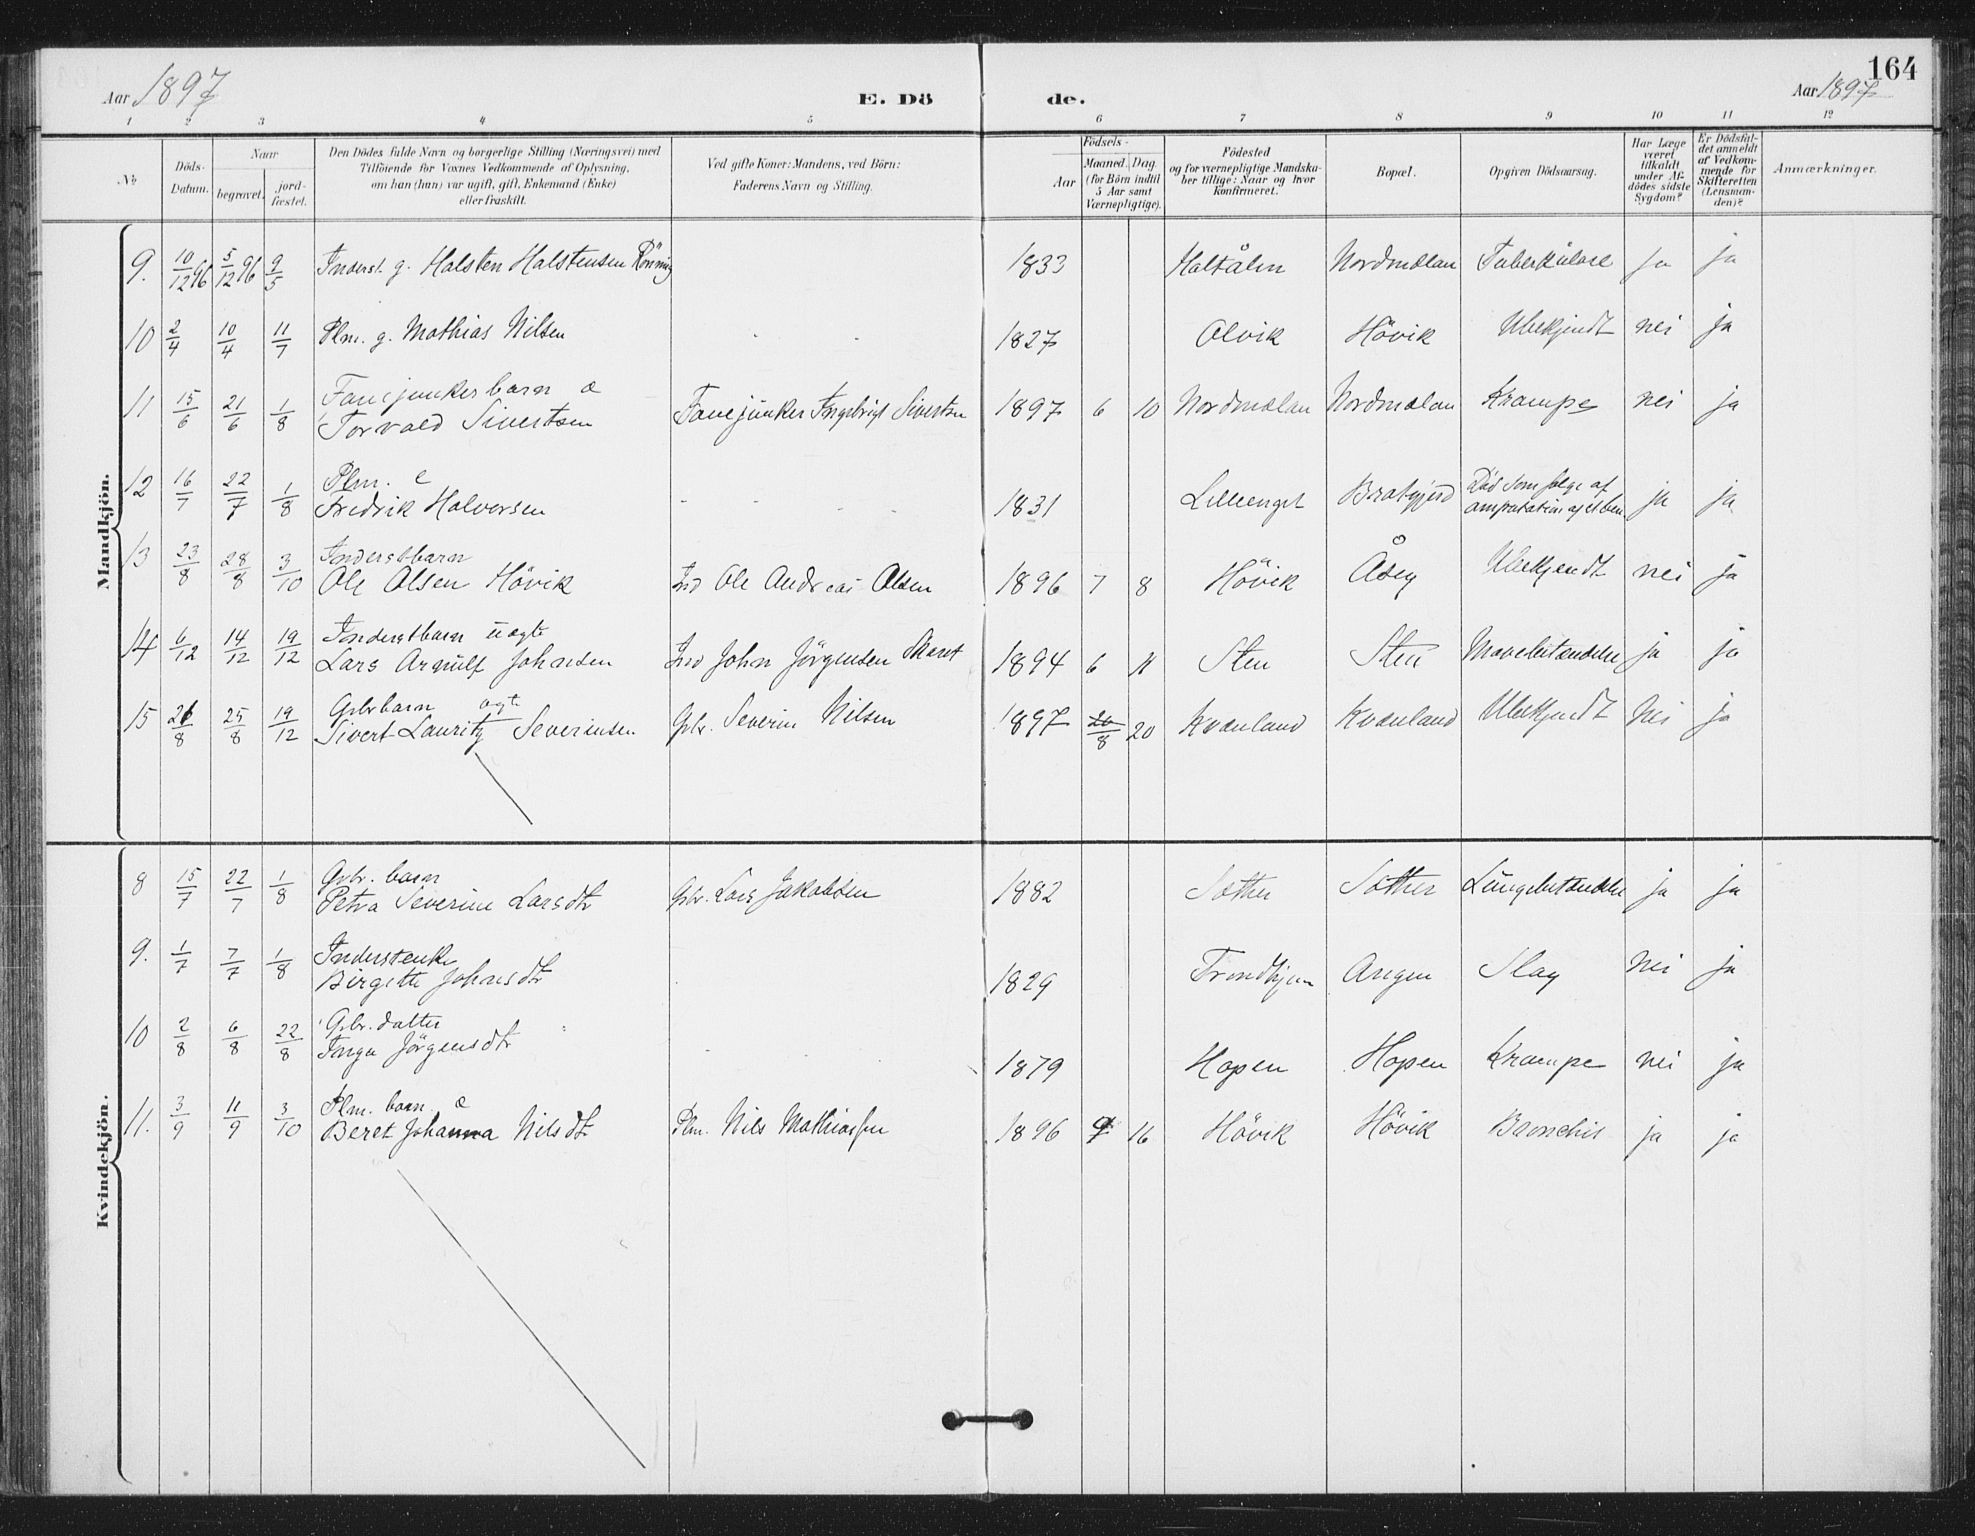 164
Aar 1897
E. Dö
de.
Aar 1897
1 2 3 4 5 6 7 8 9 10 11 12
№
Döds-Datum.
Naar
begravet. jord-fæstet.
Den Dödes fulde Navn og borgerlige Stilling (Næringsvei) med
Tilföiende for Voxnes Vedkommende af Oplysning,
om han (hun) var ugift, gift, Enkemand (Enke)
eller fraskilt.
Ved gifte Koner: Mandens, ved Börn:
Faderens Navn og Stilling.
Födsels-
Aar
Maaned. Dag.
(for Börn indtil
5 Aar samt
Værnepligtige).
Födested
og for værnepligtige Mandska-
ber tillige: Naar og hvor
Konfirmeret.
Bopæl.
Opgiven Dödsaarsag.
Har Læge
været
tilkaldt
under Af-
dödes sidste
Sygdom?
Er Dödsfal-
det anmeldt
af Vedkom-
mende for
Skifteretten
(Lensman-
den)?
Anmærkninger.
Mandkjön.
9. 10/12 96 5/12 96 9/5 Inderst. g. Halsten Halstensen Rönning 1833 Haltålen Nordmelan Tuberkulose ja ja
10 2/4 10/4 11/7 Plm. g. Mathias Nilsen 1827 Olvik Hövik Ubekjendt nei ja
11 15/6 21/6 1/8 Fanejunkerbarn æ
Torvald Sivertsen Fanejunker Ingebrigt Sivertsen 1897 6 10 Nordmelan Nordmelan Krampe nei ja
12 16/7 22/7 1/8 Plm. e
Fredrik Halvorsen 1831 Lilleenget Bratgjerd Död som fölge af
amputation af et ben ja ja
13 23/8 28/8 3/10 Inderstbarn
Ole Olsen Hövik Ind Ole Andreas Olsen 1896 7 8 Hövik Åsey Ubekjendt nei ja
14 6/12 14/12 19/12 Inderstbarn uægte
Lars Arnulf Johnsen Ind John Jörgensen Skaret 1894 6 11 Sten Sten Mavebetændelse ja ja
15 21/8 25/8 19/12 Gbrbarn ægte
Sivert Lauritz Severinsen Gbr. Severin Nilsen 1897 20/8 20 Kvænland Kvænland Ubekjendt Nei ja
Kvindekjön.
8 15/7 22/7 1/8 Gbr. barn
Petra Severine Larsdtr Gbr. Lars Jakobsen 1882 Sæther Sæther Lungebetændelse ja ja
9. 1/7 7/7 1/8 Inderstenke
Birgitte Johnsdtr 1829 Trondhjem Angen Slag Nei ja
10 2/8 6/8 22/8 Gbr. datter
Inga Jörgensdtr 1879 Hopen Hopen Krampe nei ja
11. 3/9 11/9 3/10 Plm. barn æ
Beret Johanna Nilsdtr Plm. Nils Mathiassen 1896 9 16 Hövik Hövik Bronchit ja ja